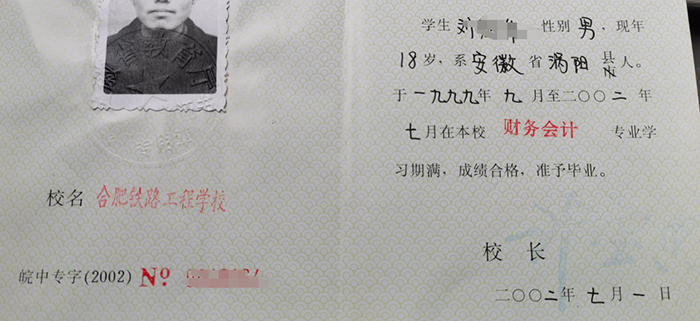 校名 合肥铁路工程学校
皖中专字(2002) No
学生 刘 性别 男，现年
18岁，系 安徽 省 涡阳 县 人。
于一九九九年 九 月至二〇〇二 年
七月在本校 财务会计 专业学
习期满，成绩合格，准予毕业。
校 长
二〇〇二年 七 月 一 日